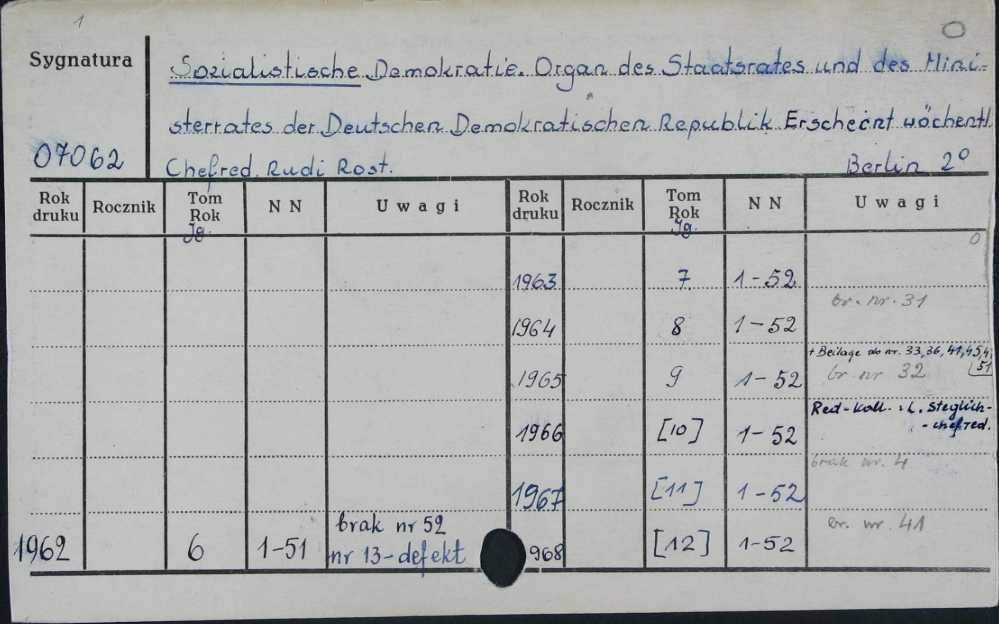 1
Sygnatura
07062
Sozialistische Demokratie. Organ des Staatsrates und des Mini-
sterrates der Deutschen Demokratischen Republik Erscheint wöchentl.
Chefred. Rudi Rost. Berlin 2°
Rok druku Rocznik Tom Rok Jg. NN Uwagi Rok druku Rocznik Tom Rok Jg. NN Uwagi
0
1963 7 1-52
br. nr. 31
1964 8 1-52
+ Beilage do nr. 33, 36, 41, 45,
51
1965 9 1-52 br nr 32
Red-Koll. : L. Steglich-
-chefred.
1966 [10] 1-52
brak nr. 4
1967 [11] 1-52
br. nr. 41
1962 6 1-51 brak nr 52
nr 13-defekt
968 [12] 1-52